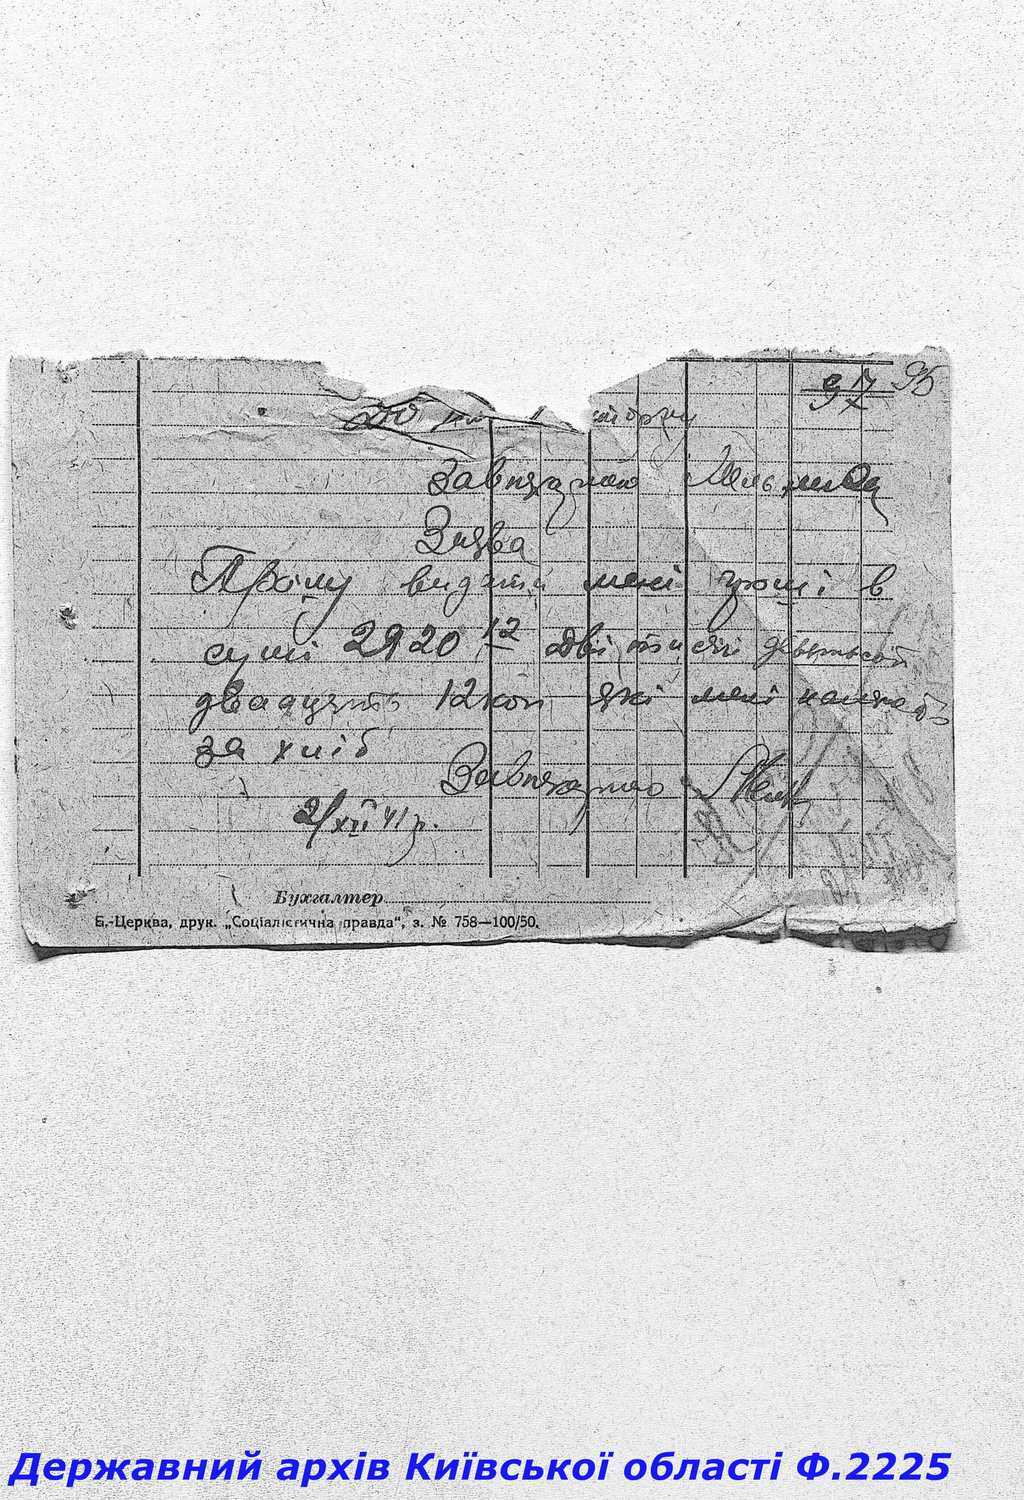 97 95
До
Завпекарнею Мельника
Заява
Прошу видати мені гроші в
сумі 2920 12 Дві тисячі девятьсот
двадцять 12 коп які мені належать
за хліб
Завпекарнею
2/XII 41 р.
Бухгалтер
Б.-Церква, друк. „Соціалістична правда“, з. № 758—100/50.
Державний архів Київської області Ф.2225